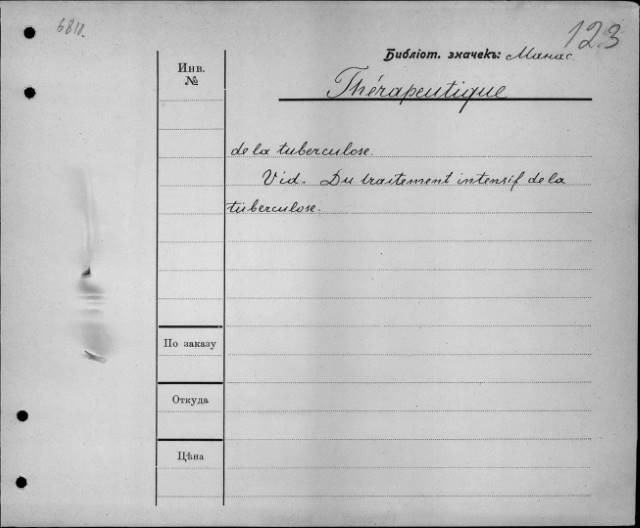 6811.
123
Библіот. значекъ: Манас.
Инв.
№
Thérapeutique
de la tuberculose.
Vid. Du traitement intensif de la
tuberculose.
По заказу
Откуда
Цѣна